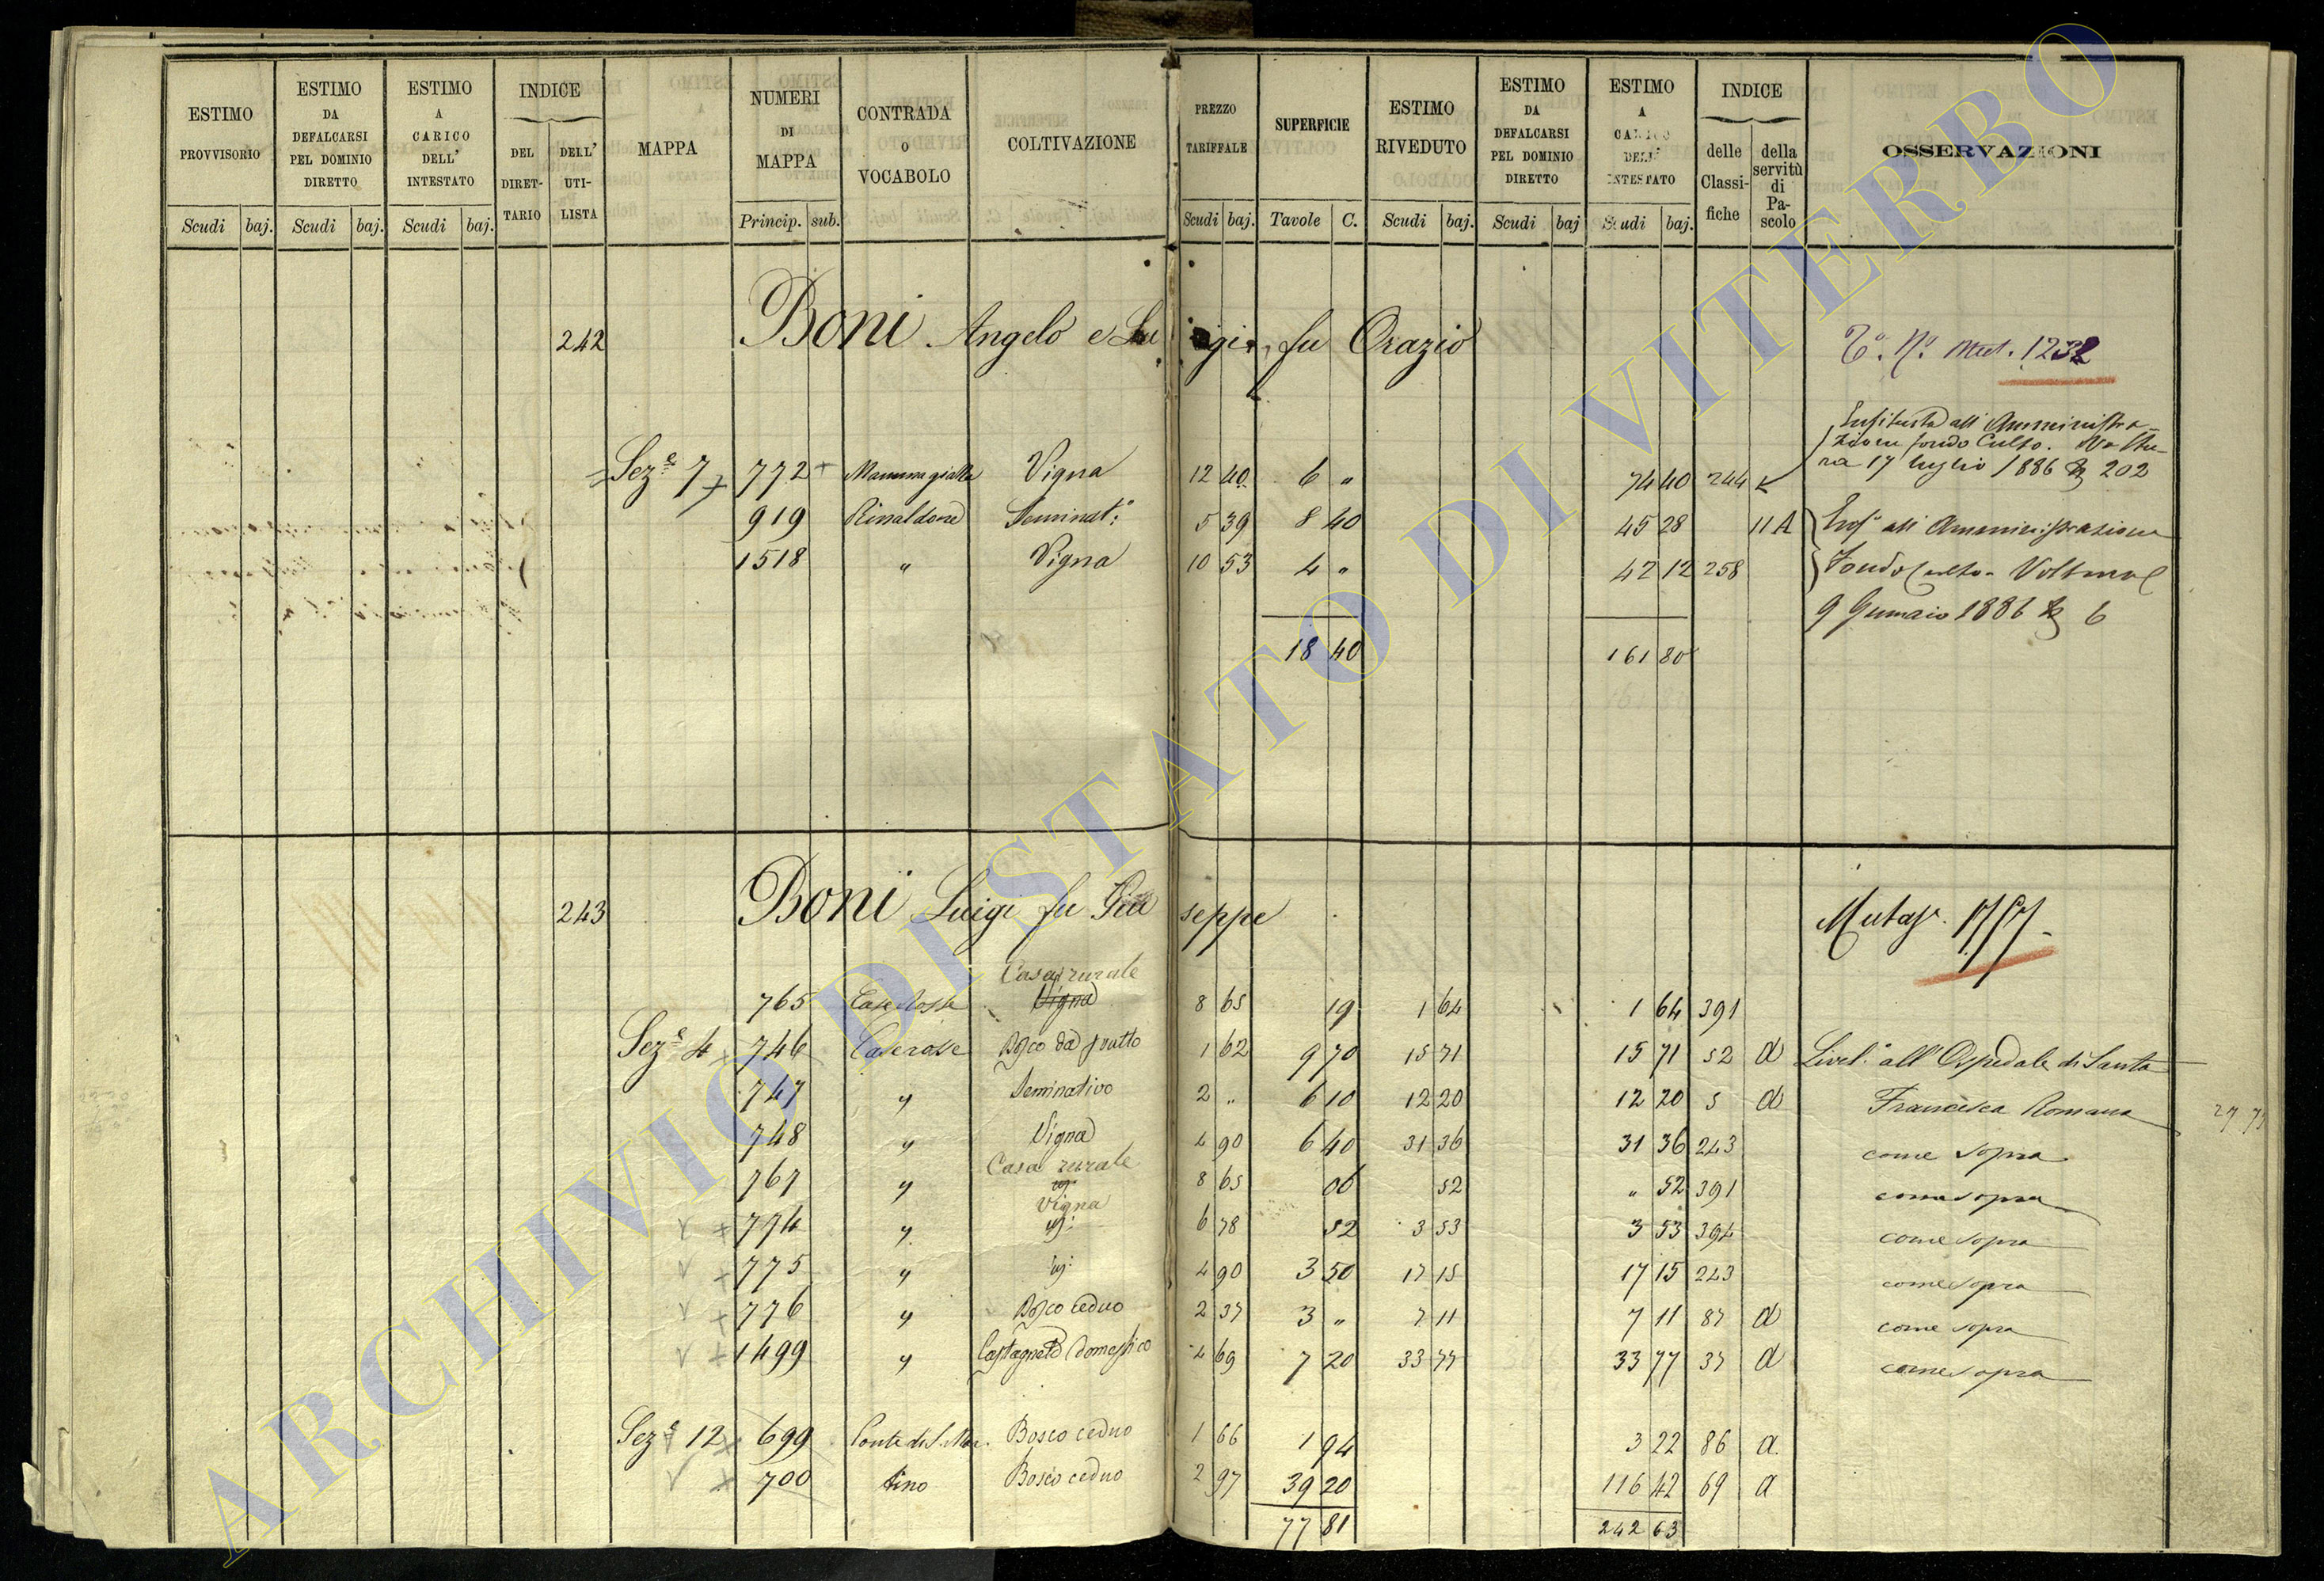 ESTIMO PROVVISORIO Scudi baj.
ESTIMO DA DEFALCARSI PEL DOMINIO DIRETTO Scudi baj.
ESTIMO A CARICO DELL' INTESTATO Scudi baj.
INDICE DEL DIRETTARIO DELL' UTILISTA
MAPPA
NUMERI DI MAPPA Princip. sub.
CONTRADA O VOCABOLO
COLTIVAZIONE
PREZZO TARIFFALE Scudi baj.
SUPERFICIE Tavole C.
ESTIMO RIVEDUTO Scudi baj.
ESTIMO DA DEFALCARSI PEL DOMINIO DIRETTO Scudi baj
ESTIMO A CARICO DELL' INTESTATO Scudi baj.
INDICE delle Classifiche della servitù di Pascolo
OSSERVAZIONI
242 Boni Angelo e Luigi, fu Orazio
1232
all' Amministra-
zione fondo Culto. Voltu-
ra 17 luglio 1886 202
Sez.e 7 772 Mammagialla Vigna 12 40 6 " 74 40 244
919 Rinaldone Seminat.o 5 39 8 40 45 28 11 A all' Amministrazione
1518 " Vigna 10 53 4 " 42 12 258 Fondo Culto. Voltura
9 Gennaio 1886 6
18 40 161 80
243 Boni Luigi fu Giuseppe
Casa rurale
765 Case rosse Vigna 8 65 19 1 64 1 64 391
Sez.e 4 746 Caserosse Bosco da frutto 1 62 9 70 15 71 15 71 52 a Livel.o all' Ospedale di Santa
747 " Seminativo 2 " 6 10 12 20 12 20 5 a Francesca Romana
748 " Vigna 4 90 6 40 31 36 31 36 243 come sopra
Casa rurale
767 " 8 65 06 52 " 52 391 come sopra
Vigna
774 " 6 78 52 3 53 3 53 394 come sopra
775 " 4 90 3 50 17 15 17 15 243 come sopra
776 " Bosco ceduo 2 37 3 " 7 11 7 11 87 a come sopra
1499 " Castagneto domestico 4 69 7 20 33 77 33 77 37 a come sopra
Sez.e 12 699 Ponte di S. Mar. Bosco ceduo 1 66 1 94 3 22 86 a.
700 tino Bosco ceduo 2 97 39 20 116 42 69 a
77 81 242 63
ARCHIVIO DI STATO DI VITERBO